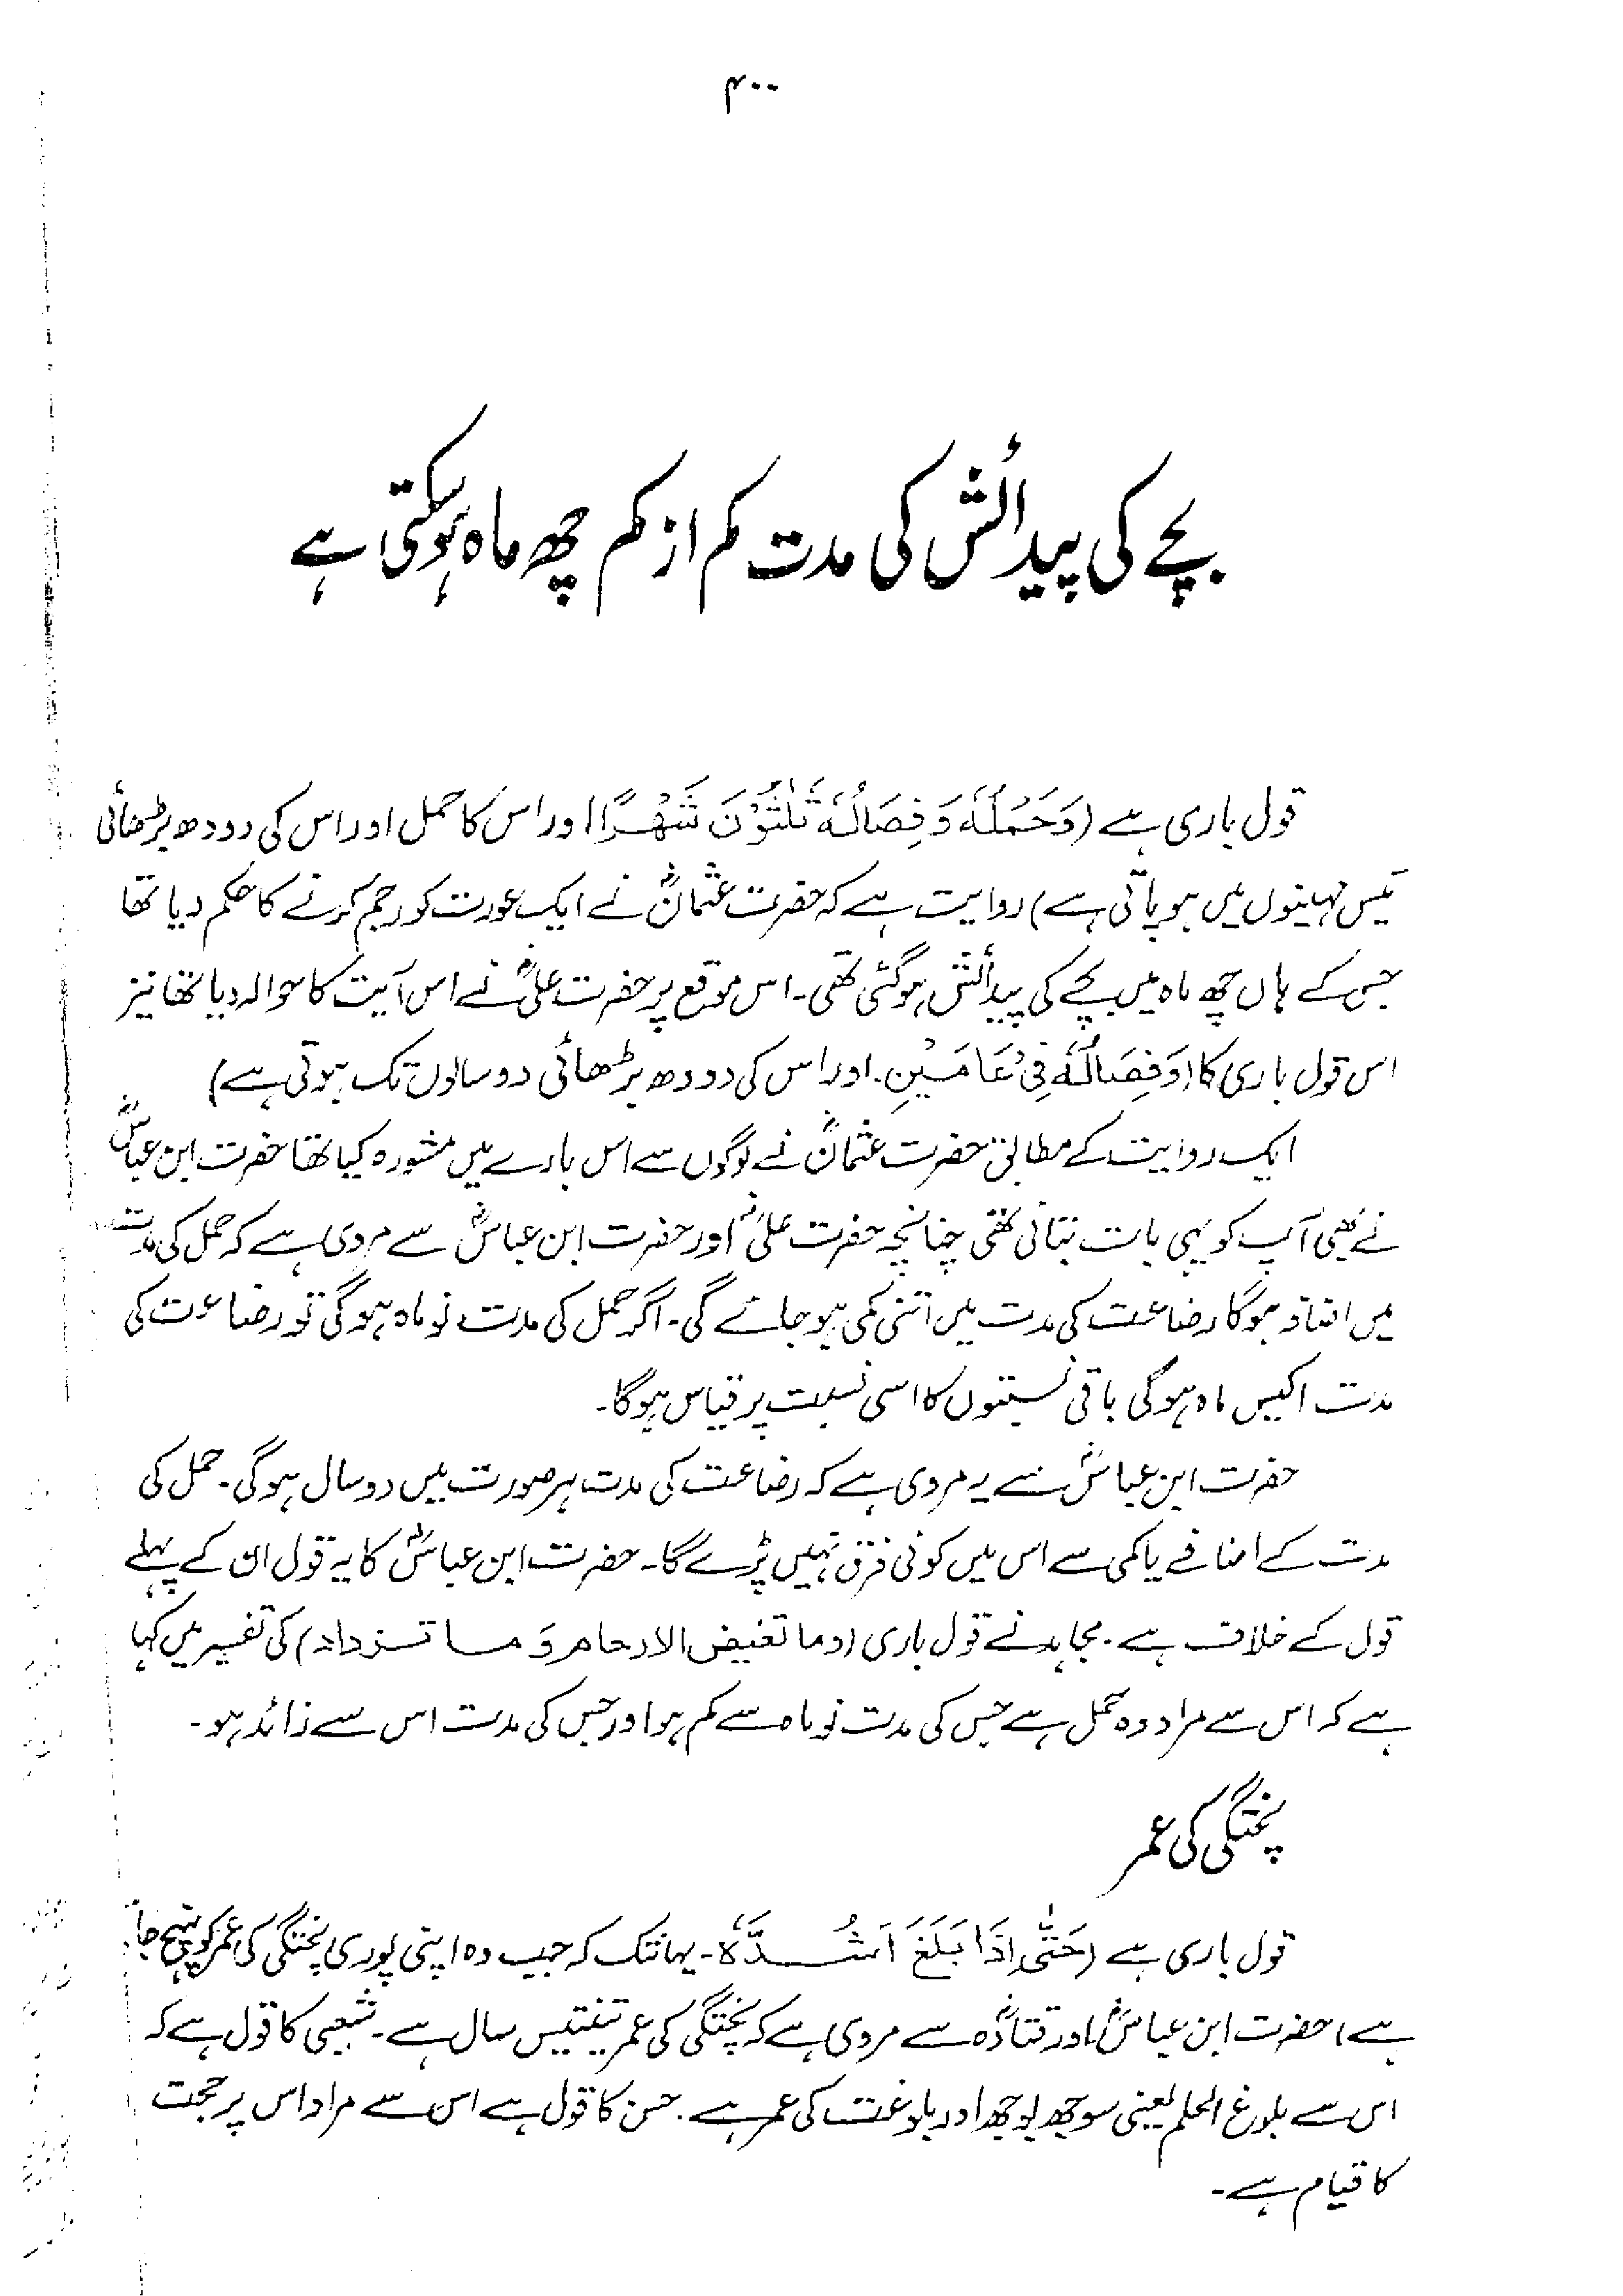 ۴۰۰
بچے کی پیدائش کی مدت کم از کم چھ ماہ ہوسکتی ہے
قول باری ہے (وَحَمْلُهٗ وَفِصَالُهٗ ثَلٰثُوْنَ شَهْرًا اور اس کا حمل اور اس کی دودھ بڑھائی
تیس مہینوں میں ہو پاتی ہے) روایت ہے کہ حضرت عثمانؓ نے ایک عورت کو رجم کرنے کا حکم دیا تھا
جس کے ہاں چھ ماہ میں بچے کی پیدائش ہوگئی تھی۔ اس موقع پر حضرت علیؓ نے اس آیت کا حوالہ دیا تھا نیز
اس قول باری کا (وَفِصَالُهٗ فِیْ عَامَیْنِ۔ اور اس کی دودھ بڑھائی دو سالوں تک ہوتی ہے)
ایک روایت کے مطابق حضرت عثمانؓ نے لوگوں سے اس بارے میں مشورہ کیا تھا حضرت ابن عباسؓ
نے بھی آپ کو یہی بات بتائی تھی چنانچہ حضرت علیؓ اور حضرت ابن عباسؓ سے مروی ہے کہ حمل کی مدت
میں اضافہ ہوگا رضاعت کی مدت میں اتنی کمی ہو جائے گی۔ اگر حمل کی مدت نو ماہ ہوگی تو رضاعت کی
مدت اکیس ماہ ہوگی باقی نسبتوں کا اسی نسبت پر قیاس ہوگا۔
حضرت ابن عباسؓ سے یہ مروی ہے کہ رضاعت کی مدت ہر صورت میں دو سال ہوگی۔ حمل کی
مدت کے اضافے یا کمی سے اس میں کوئی فرق نہیں پڑے گا۔ حضرت ابن عباسؓ کا یہ قول ان کے پہلے
قول کے خلاف ہے۔ مجاہد نے قول باری (وما تغیض الارحام وَما تزداد) کی تفسیر میں کہا
ہے کہ اس سے مراد وہ حمل ہے جس کی مدت نو ماہ سے کم ہو اور جس کی مدت اس سے زائد ہو۔
پختگی کی عمر
قول باری ہے (حَتّٰی اِذَا بَلَغَ اَشُدَّهٗ۔ یہانتک کہ جب وہ اپنی پوری پختگی کی عمر کو پہنچ جا
ہے) حضرت ابن عباسؓ اور قتادہؓ سے مروی ہے کہ پختگی کی عمر تینتیس سال ہے۔ شعبی کا قول ہے کہ
اس سے بلوغ الحلم یعنی سوجھ بوجھ اور بلوغت کی عمر ہے۔ حسن کا قول ہے اس سے مراد اس پر حجت
کا قیام ہے۔